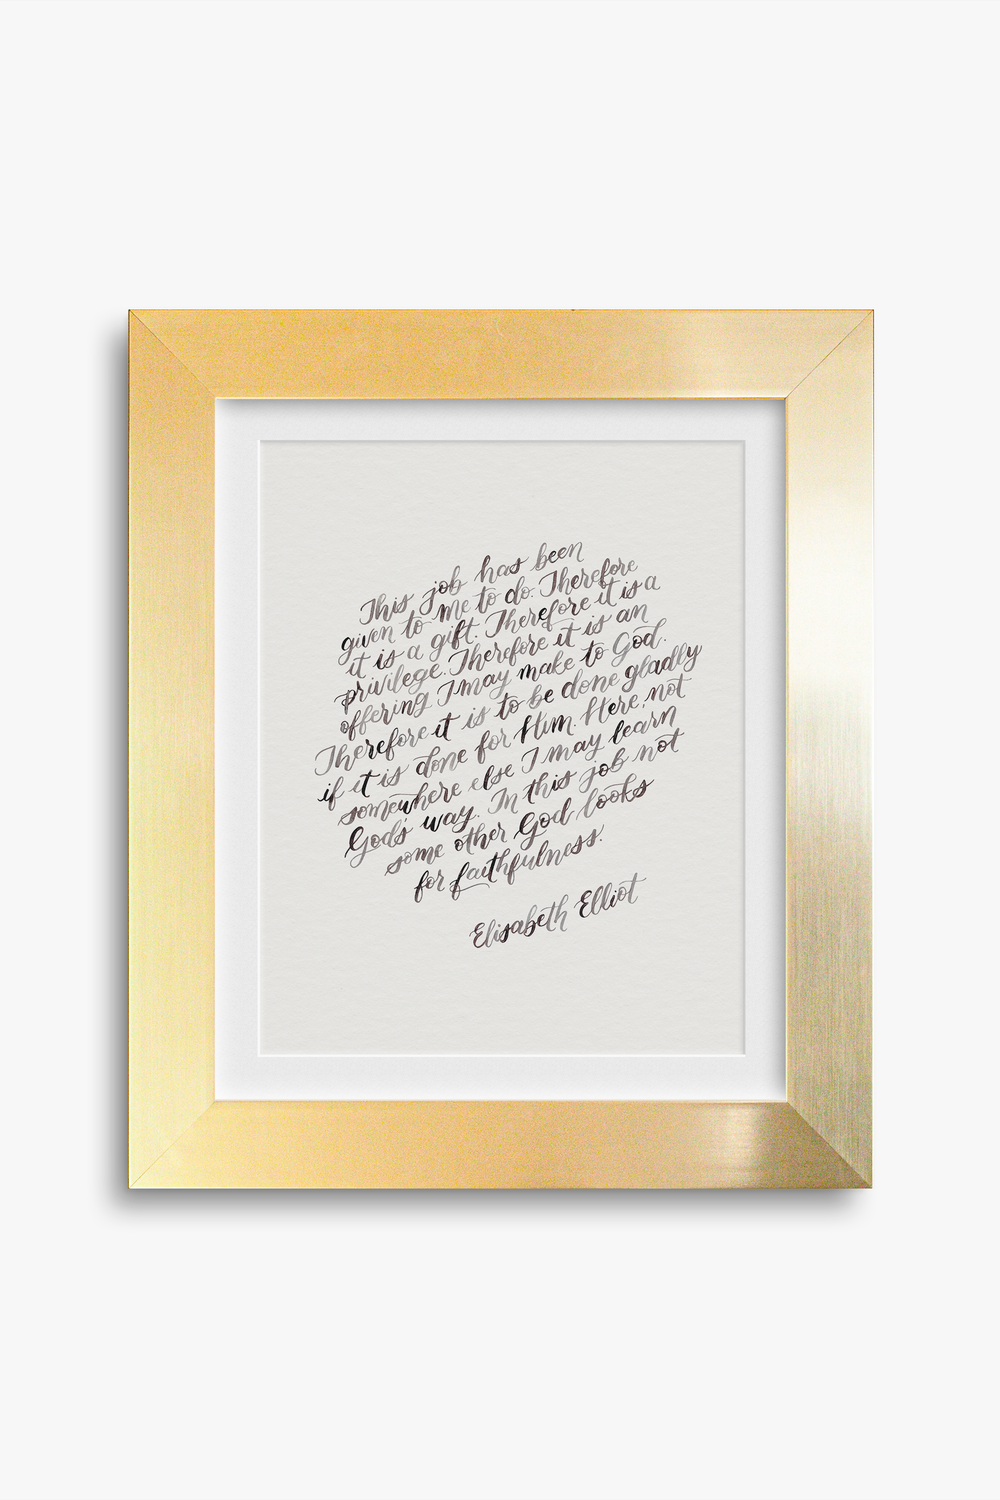 This job has been
given to me to do. Therefore
it is a gift. Therefore it is a
privilege. Therefore it is an
offering I may make to God.
Therefore it is to be done gladly
if it is done for Him. Here, not
somewhere else I may learn
God's way. In this job not
some other God looks
for faithfulness.
Elisabeth Elliot